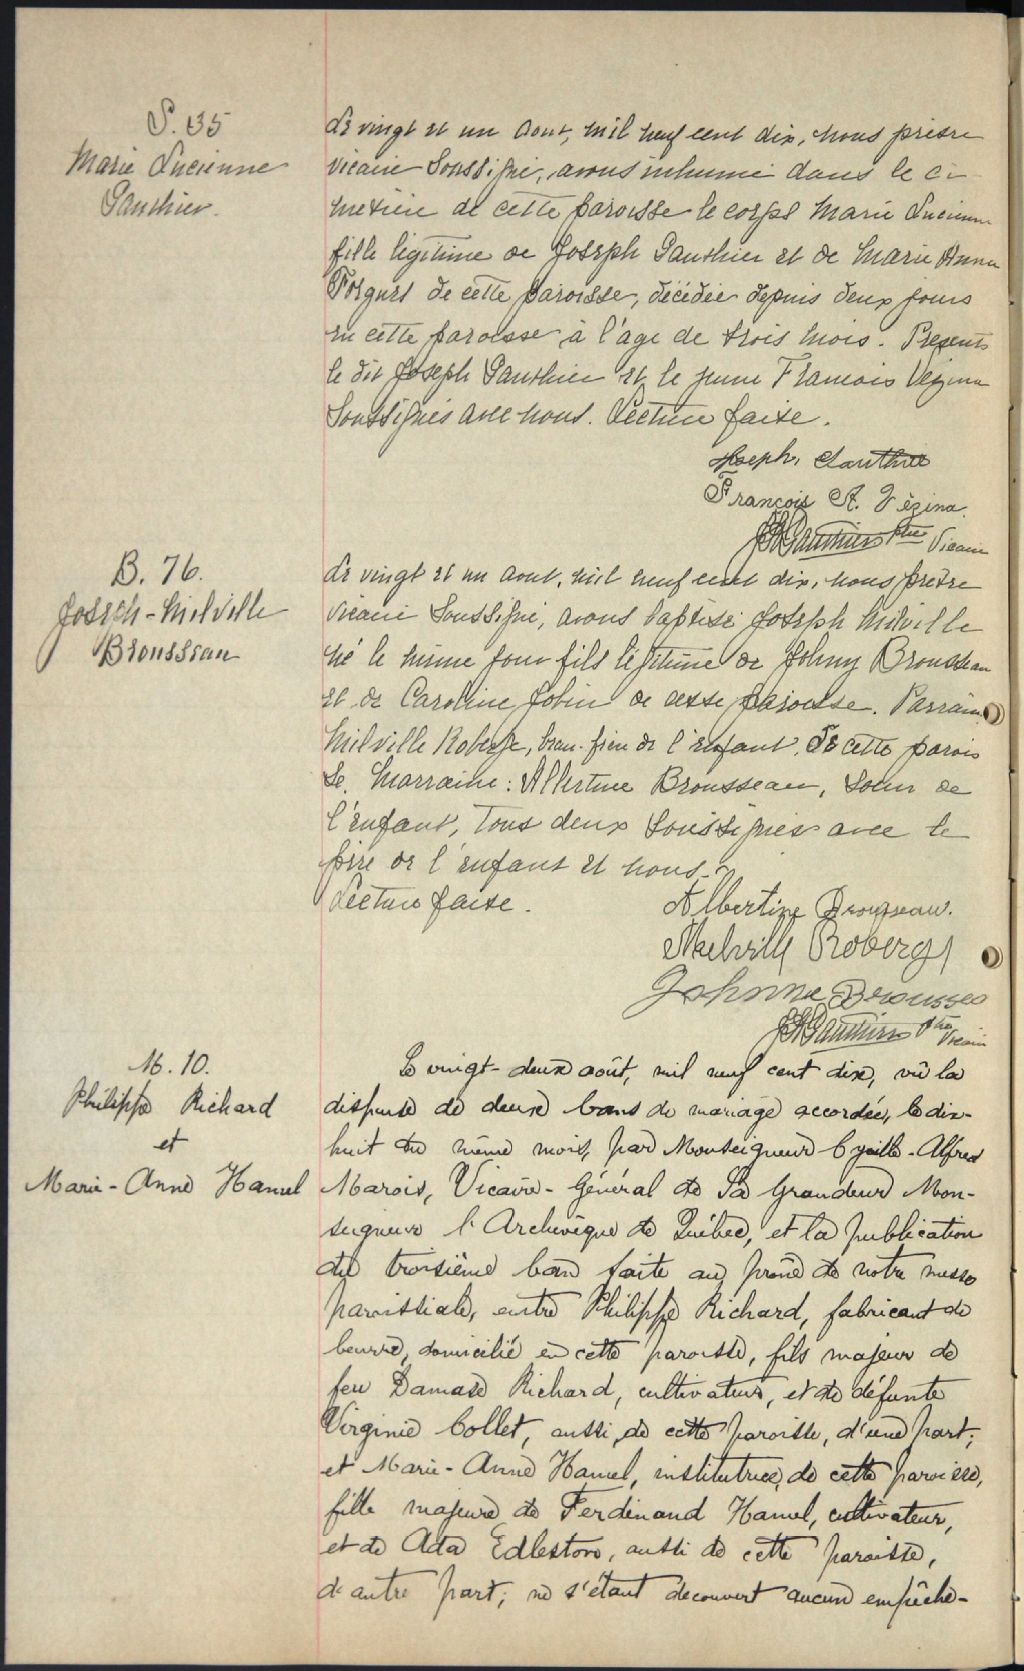 S. 35
Marie Lucienne
Gauthier.
Le vingt et un Aout, mil neuf cent dix, nous prêtre
vicaire Soussigné, avons inhumé dans le ci-
metière de cette paroisse le corps Marie Lucienne
fille légitime de Joseph Gauthier et de Marie Anna
Forgues de cette paroisse, décédée depuis deux jours
en cette paroisse à l'âge de trois mois. Presents
le dit Joseph Gauthier et le jeune Francois Vezina
Soussignés avec nous. Lecture faite.
Joseph Gauthier
François A. Vézina.
Gauthier Ptre Vicaire
B. 76.
Joseph-Milville
Brousseau
Le vingt et un aout, mil neuf cent dix, nous prêtre
vicaire Soussigné, avons baptisé Joseph Milville
né le même jour fils légitime de Johny Brousseau
et de Caroline Jobin de cette paroisse. Parrain
Milville Roberge, beau-frère de l'enfant, De cette parois
se. Marraine: Albertine Brousseau, soeur de
l'enfant, Tous deux Soussignés avec le
père de l'enfant et nous.
Lecture faite.
Albertine Brousseau.
Melvill Roberg
Johnne Brousseo
Gauthier Ptre Vicaire
M. 10.
Philippe Richard
et
Marie-Anne Hamel
Le vingt-deux août, mil neuf cent dix, vû la
dispense de deux bans de mariage accordée, le dix-
huit du même mois, par Monseigneur Cyrille-Alfred
Marois, Vicaire-Général de Sa Grandeur Mon-
seigneur l'Archevêque de Québec, et la publication
du troisième ban faite au prône de notre messe
paroissiale, entre Philippe Richard, fabricant de
beurre, domicilié en cette paroisse, fils majeur de
feu Damase Richard, cultivateur, et de défunte
Virginie Collet, aussi de cette paroisse, d'une part;
et Marie-Anne Hamel, institutrice, de cette paroisse,
fille majeure de Ferdinand Hamel, cultivateur,
et de Ada Edleston, aussi de cette paroisse,
d'autre part; ne s'étant découvert aucun empêche-